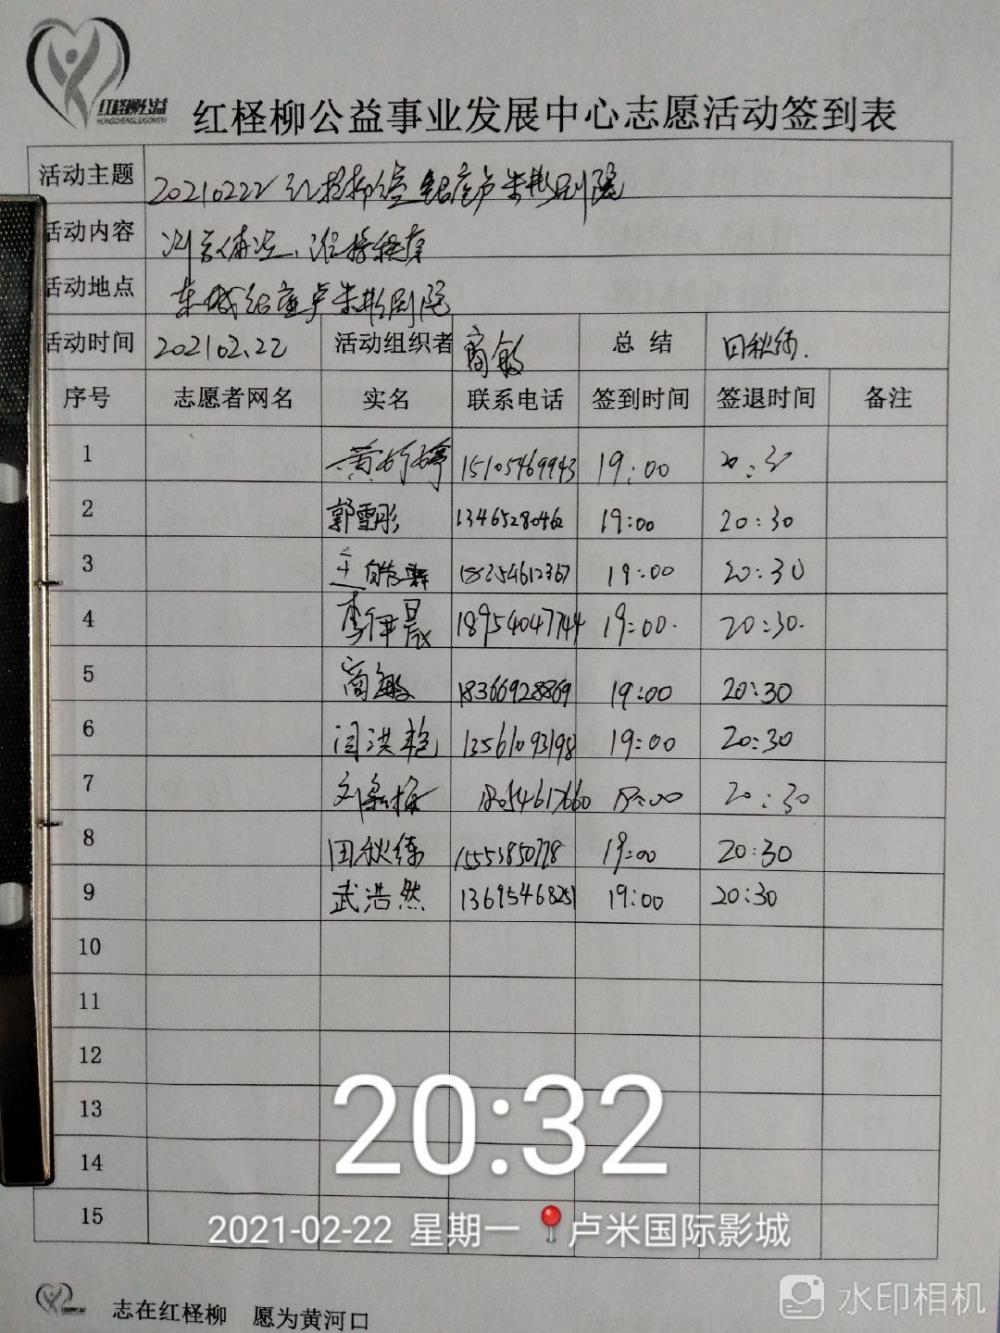 红柽柳公益
HONGCHENGLIUGONGYI
红柽柳公益事业发展中心志愿活动签到表
活动主题 20210222 红柽柳值 卢米影剧院
活动内容 测量体温、维持秩序
活动地点 东城 卢米影剧院
活动时间 2021 02.22 活动组织者 商敏 总 结 田秋练.
序号 志愿者网名 实名 联系电话 签到时间 签退时间 备注
1 黄 15105469943 19:00 20:30
2 郭雪彤 13465280462 19:00 20:30
3 王皓 18254612367 19:00 20:30
4 李伊晨 18954047744 19:00. 20:30.
5 商敏 18366928869 19:00 20:30
6 闫洪艳 13561093198 19:00 20:30
7 刘 18054617660 19:00 20:30
8 田秋练 15553850778 19:00 20:30
9 武浩然 13695468251 19:00 20:30
10
11
12
13
14
15
20:32
2021-02-22 星期一 卢米国际影城
志在红柽柳 愿为黄河口
水印相机